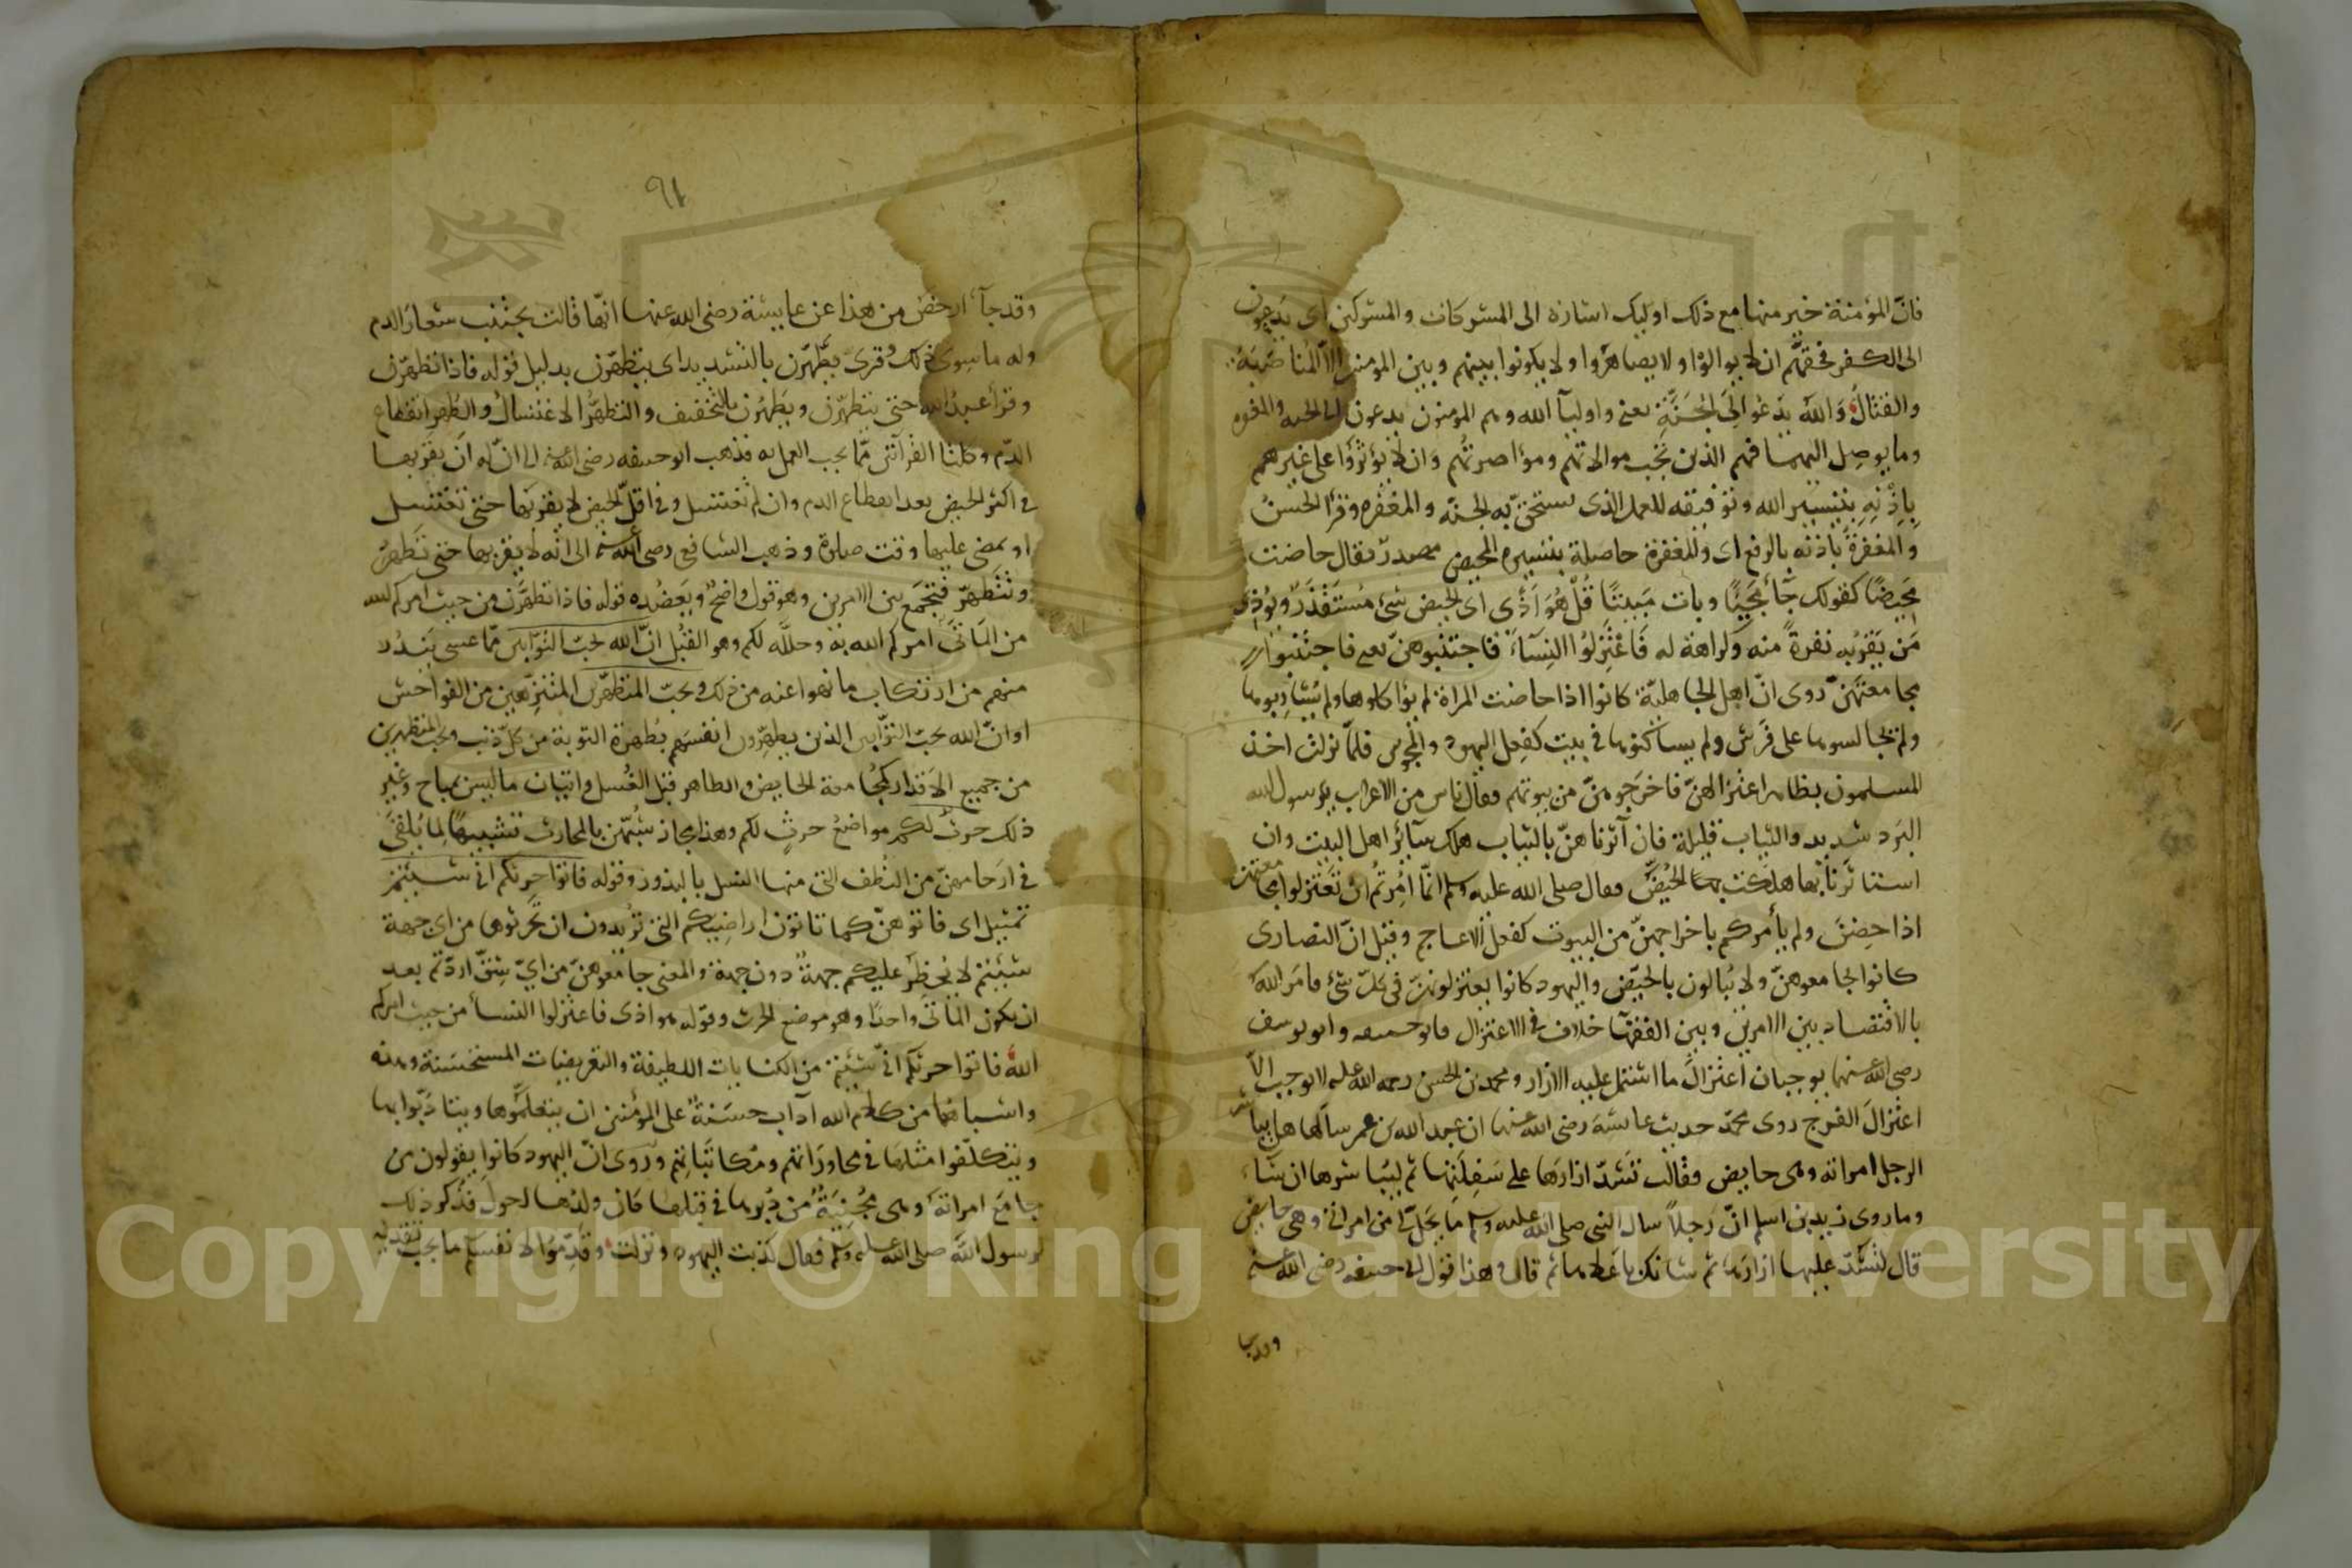 فانّ المؤمنة خير منها مع ذلك اوليك اشارة الى المشركات والمشركين اى يدعون
الى الكفر فحقّهم ان لا يوالوْا ولا يصاهَروا ولا يكونوا بينهم وبين المومنين الا المُناصَبَةُ
والقتالُ وَاللهُ يَدْعُو الَى الجَنَّةِ يعنى واوليآ الله وهم المومنون يدعون الى الجنه والمغفره
وما يوصِل اليهما فهم الذين تَجب موالاتهم ومؤاصرتُهم وان لا يؤثرَوا على غيرهم
بِاِذْنِهِ بتيسير الله وتوفيقه للعمل الذى ستحقّ به الجنّه والمغفره وقرأ الحسنُ
وَالمغفرةُ باذنه بالرفع اى والمغفرة حاصلة بتيسيره المحيض مصدرٌ يقال حاضت
مَحِيضًا كقولك جَآَ مَجِيًا وبات مَبِيتًا قُلْ هُوَ اَذًى اى الحيض شئ مُستَقذَرٌ ويُوذى
مَن يَقرُبه نفرةً منه وكراهة له فَاعْتَزِلُوا النِسَآءَ فاجتنبوهنّ يعنى فاجتنبوا
مجامعتهَنّ روى انّ اهل الجاهليّة كانوا اذا حاضت المراة لم يؤاكلوها ولم يُشَاربوها
ولم يجالسوها على فَرَش ولم يساكنوها فى بيت كفعل اليهود والمجوس فلمّا نزلت اخذ
المسلمون بظاهر اعتزالهنّ فاخرَجوهنّ من بيوتهم فقال ناس من الاعراب يرسول الله
البَرد شديد والثياب قليلة فان آثرناهنّ بالثياب هلك سآئر اهل البيت وان
استاثرنا بها هلكت الحُيَّضُ فقال صلى الله عليه وسلم انّما اُمِرتُم ان تعتزلوا مجامعتهن
اذا حِضنَ ولم يأمركم باخراجهنّ من البيوت كفعل الاعاجم وقيل انّ النصارى
كانوا يجامعوهنّ ولا يُبالون بالحيّض واليهود كانوا يعتزلونهنّ فى كلّ شئ فامَر اللهُ
بالاقتصاد بين الامرين وبين الفقهآ خلاف فى الاعتزال فابو حنيفه وابو يوسف
رضى الله عنهما يوجبان اعتزالَ ما اشتمل عليه الازار ومحمد بن الحسن رحمه الله عليه لا يوجب الّا
اعتزالَ الفرج روى محمّد حديث عائشهَ رضى الله عنها ان عبد الله بن عمر سألها هل يباشر
الرجل امراته وهى حايض فقالت تَشدّ ازارَها على سَفِلَتِها ثم ليُباشرها ان شاء
وما روى زيد بن اسلم انّ رَجلاً سال النبى صلى الله عليه وسلم ما يَحِلّ لى من امراتى وهى حايض
قال لتَشُدّ عليها ازارَها ثم شانَكَ باعَلاها ثم قال وهذا قول ابى حنيفه رضى الله عنه
وقد جآ
٩٦
وقد جآَ ارخصُ من هذا عن عايشة رضى الله عنها انّها قالت يجتنب شعارَ الدم
وله ما سِوى ذلك وقرئ يَطَّهّرن بالتشديد اى يتطهّرن بدليل قوله فاذا تطهّرن
وقرأ عبد الله حتى يتطهّرن ويَطْهُرن بالتخفيف والتطهُّر الاغتسالُ والطُهر انقطاع
الدّم وكلتا القرآتين ممّا يجب العمل به فذهب ابو حنيفه رضى الله عنه الى انّ له انَ يقربها
فى اكثر الحيض بعد انقطاع الدم وان لم تغتسل وفى اقلّ الحيض لا يقربها حتى تغتسل
او يمضى عليها وقت صلوة وذهب الشافعى رضى الله عنه الى انّه لا يقربها حتى تَطهُرَ
وتَتَطهَّر فتجمَع بين الامرين وهو قول واضحٌ ويَعضُده قوله فاذا تطهّرن من حيث امركم الله
من المَاتَى امركم الله به وحلّله لكم وهو القبُل انّ الله يحبّ التوّابين ممّا عسى يَندُر
منهم من ارتكاب ما نهوا عنه من ذلك ويحبّ المتطهّرين المتنزّهين من الفواحش
او انّ الله يحبّ التوّابين الذين يطهّرون انفسَهم بطُهرة التوبة من كلّ ذنب ويحب المتطهرين
من جميع الاَقذار كمُجامعة الحايض والطاهر قبل الغُسل واتيان ما ليس بمباح وغير
ذلك حرثٌ لكم مواضعُ حرثٍ لكم وهذا مجاز شُبّهن بالمحارث تشبيهًا لِما يُلقىَ
فى ارَحامهنّ من النُطف التى منها النسل بالبذور وقوله فاتوا حرثكم انّى شئتم
تمثيل اى فاتوهنّ كما تاتون اراضيكم التى تُريدون ان تَحرثوها من اى جهة
شِئتم لا يُحظر عليكم جهةٌ دون جهة والمعنى جامعوهنّ من اىّ شِقٍّ اردتم بعد
ان يكون المَاتَى واحدًا وهو موضع الحرث وقوله هو اذى فاعتزلوا النسآ من حيث امركم
اللهُ فاتوا حرثكم انّى شئتم من الكنايات اللطيفة والتعريضات المستحسَنة وهذه
واشباهُها من كلام الله آداب حَسَنةٌ على المؤمنين ان يتعلّموها ويتادّبوا بها
ويتكلّفوا مثلَها فى محاورَاتهم ومُكاتباتهم ورُوى انّ اليهود كانوا يقولون من
جامَع امراتَه وهى مُجَبِّيَةٌ من دُبُرها فى قبلها كان ولدُها احول فذُكر ذلك
لرسول الله صلى الله عليه وسلم فقال كذبت اليهود ونزلت وقدِّمُوا لانفُسكم ما يجب تقديمه